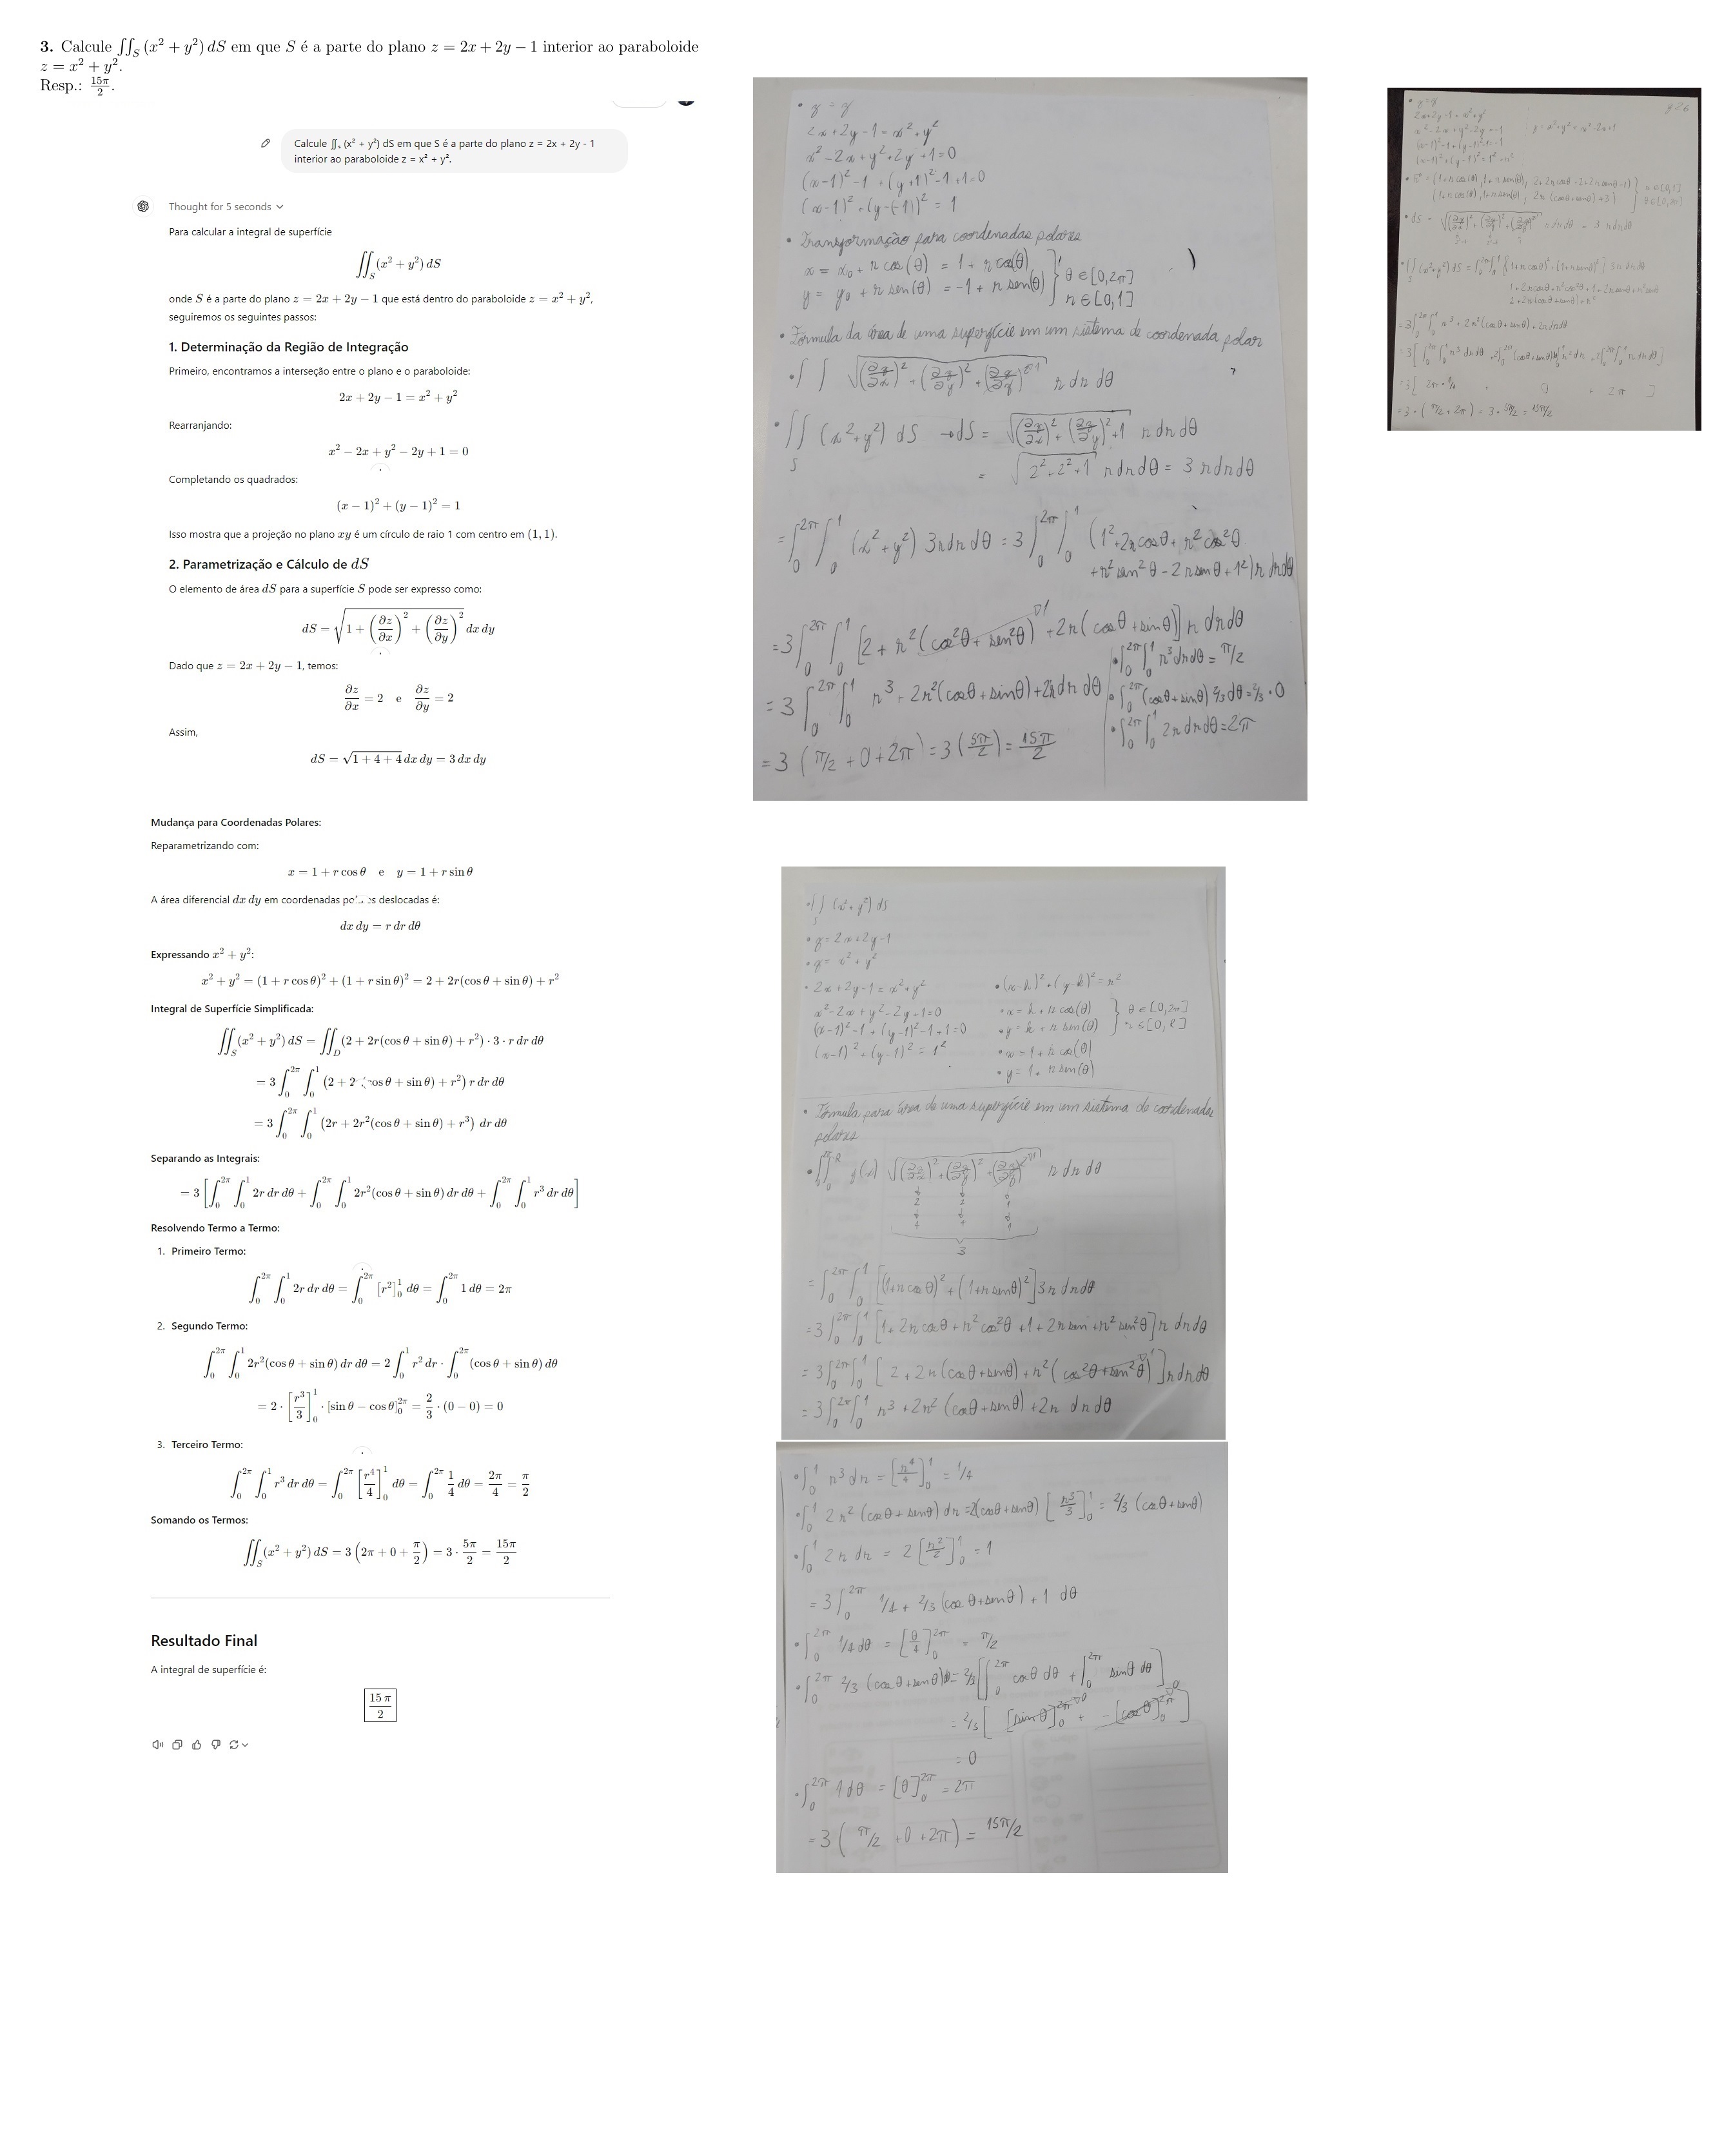 3. Calcule ∬_S (x² + y²) dS em que S é a parte do plano z = 2x + 2y − 1 interior ao paraboloide
z = x² + y².
Resp.: 15π/2.
Calcule ∬ₛ (x² + y²) dS em que S é a parte do plano z = 2x + 2y - 1
interior ao paraboloide z = x² + y².
Thought for 5 seconds
Para calcular a integral de superfície
∬_S (x² + y²) dS
onde S é a parte do plano z = 2x + 2y − 1 que está dentro do paraboloide z = x² + y²,
seguiremos os seguintes passos:
1. Determinação da Região de Integração
Primeiro, encontramos a interseção entre o plano e o paraboloide:
2x + 2y − 1 = x² + y²
Rearranjando:
x² − 2x + y² − 2y + 1 = 0
Completando os quadrados:
(x − 1)² + (y − 1)² = 1
Isso mostra que a projeção no plano xy é um círculo de raio 1 com centro em (1, 1).
2. Parametrização e Cálculo de dS
O elemento de área dS para a superfície S pode ser expresso como:
dS = √(1 + (∂z/∂x)² + (∂z/∂y)²) dx dy
Dado que z = 2x + 2y − 1, temos:
∂z/∂x = 2 e ∂z/∂y = 2
Assim,
dS = √(1 + 4 + 4) dx dy = 3 dx dy
Mudança para Coordenadas Polares:
Reparametrizando com:
x = 1 + r cos θ e y = 1 + r sin θ
A área diferencial dx dy em coordenadas deslocadas é:
dx dy = r dr dθ
Expressando x² + y²:
x² + y² = (1 + r cos θ)² + (1 + r sin θ)² = 2 + 2r(cos θ + sin θ) + r²
Integral de Superfície Simplificada:
∬_S (x² + y²) dS = ∬_D (2 + 2r(cos θ + sin θ) + r²) · 3 · r dr dθ
= 3 ∫₀^2π ∫₀^1 (2 + 2 cos θ + sin θ) + r²) r dr dθ
= 3 ∫₀^2π ∫₀^1 (2r + 2r²(cos θ + sin θ) + r³) dr dθ
Separando as Integrais:
= 3 [∫₀^2π ∫₀^1 2r dr dθ + ∫₀^2π ∫₀^1 2r²(cos θ + sin θ) dr dθ + ∫₀^2π ∫₀^1 r³ dr dθ]
Resolvendo Termo a Termo:
1. Primeiro Termo:
∫₀^2π ∫₀^1 2r dr dθ = ∫₀^2π [r²]₀^1 dθ = ∫₀^2π 1 dθ = 2π
2. Segundo Termo:
∫₀^2π ∫₀^1 2r²(cos θ + sin θ) dr dθ = 2 ∫₀^1 r² dr · ∫₀^2π (cos θ + sin θ) dθ
= 2 · [r³/3]₀^1 · [sin θ − cos θ]₀^2π = 2/3 · (0 − 0) = 0
3. Terceiro Termo:
∫₀^2π ∫₀^1 r³ dr dθ = ∫₀^2π [r⁴/4]₀^1 dθ = ∫₀^2π 1/4 dθ = 2π/4 = π/2
Somando os Termos:
∬_S (x² + y²) dS = 3 (2π + 0 + π/2) = 3 · 5π/2 = 15π/2
Resultado Final
A integral de superfície é:
15 π/2
• z = z
2x+2y-1 = x²+y²
x²-2x+y²+2y+1=0
(x-1)²-1 + (y+1)²-1+1=0
(x-1)²+(y-(-1))² = 1
• Transformação para coordenadas polares
x = x₀ + r cos(θ) = 1 + r cos(θ)
y = y₀ + r sen(θ) = -1 + r sen(θ) } θ ∈ [0,2π] r ∈ [0,1]
• Fórmula da área de uma superfície em um sistema de coordenada polar
• ∫∫ √((∂z/∂x)² + (∂z/∂y)² + (∂z/∂z)²→1) r dr dθ
• ∬_S (x²+y²) dS → dS = √((∂z/∂x)² + (∂z/∂y)² + 1) r dr dθ
= √(2²+2²+1) r dr dθ = 3 r dr dθ
= ∫₀^2π ∫₀^1 (x²+y²) 3r dr dθ = 3 ∫₀^2π ∫₀^1 (1²+2r cosθ + r² cos²θ
+ r² sen²θ - 2r senθ + 1²) r dr dθ
= 3 ∫₀^2π ∫₀^1 [2 + r²(cos²θ + sen²θ)→1 + 2r(cosθ + sinθ)] r dr dθ
= 3 ∫₀^2π ∫₀^1 r³ + 2r²(cosθ + sinθ) + 2r dr dθ
= 3 (π/2 + 0 + 2π) = 3 (5π/2) = 15π/2
• ∫₀^2π ∫₀^1 r³ dr dθ = π/2
• ∫₀^2π (cosθ + sinθ) 2/3 dθ = 2/3 · 0
• ∫₀^2π ∫₀^1 2r dr dθ = 2π
• z = z
2x+2y-1 = x²+y²
(x-1)²-1+(y-1)²-1=-1
• ∬_S (x²+y²) dS = ∫₀^2π ∫₀^1 [(1+r cosθ)² + (1+r sinθ)²] 3r dr dθ
1 + 2r cosθ + r² cos²θ + 1 + 2r sinθ + r² sin²θ
2 + 2r(cosθ + sinθ) + r²
= 3 ∫₀^2π ∫₀^1 r³ + 2r²(cosθ + sinθ) + 2r dr dθ
= 3 [ 2π · 1/4 + 0 + 2π ]
= 3 · (π/2 + 2π) = 3 · 5π/2 = 15π/2
• ∬_S (x²+y²) dS
• z = 2x+2y-1
• z = x²+y²
• 2x+2y-1 = x²+y²
x²-2x+y²-2y+1=0
(x-1)²-1+(y-1)²-1+1=0
(x-1)²+(y-1)² = 1²
• (x-h)²+(y-k)² = r²
• x = h + r cos(θ)
• y = k + r sen(θ) } θ ∈ [0,2π] r ∈ [0,R]
• x = 1 + r cos(θ)
• y = 1 + r sen(θ)
• Fórmula para área de uma superfície em um sistema de coordenadas
polares
√((∂z/∂x)² + (∂z/∂y)² + (∂z/∂z)²→1) r dr dθ
2 2 1
4 4 1
3
= ∫₀^2π ∫₀^1 [(1+r cosθ)² + (1+r sinθ)²] 3r dr dθ
= 3 ∫₀^2π ∫₀^1 [1 + 2r cosθ + r² cos²θ + 1 + 2r sen + r² sin²θ] r dr dθ
= 3 ∫₀^2π ∫₀^1 [2 + 2r(cosθ + sinθ) + r²(cos²θ + sen²θ)→1] r dr dθ
= 3 ∫₀^2π ∫₀^1 r³ + 2r²(cosθ + sinθ) + 2r dr dθ
• ∫₀^1 r³ dr = [r⁴/4]₀^1 = 1/4
• ∫₀^1 2r²(cosθ + sinθ) dr = 2(cosθ + sinθ) [r³/3]₀^1 = 2/3 (cosθ + sinθ)
• ∫₀^1 2r dr = 2 [r²/2]₀^1 = 1
= 3 ∫₀^2π 1/4 + 2/3 (cosθ + sinθ) + 1 dθ
• ∫₀^2π 1/4 dθ = [θ/4]₀^2π = π/2
• ∫₀^2π 2/3 (cosθ + sinθ) dθ = 2/3 [∫₀^2π cosθ dθ + ∫₀^2π sinθ dθ]
= 2/3 [ [sinθ]₀^2π→0 + -[cosθ]₀^2π→0 ]
= 0
• ∫₀^2π 1 dθ = [θ]₀^2π = 2π
= 3 (π/2 + 0 + 2π) = 15π/2